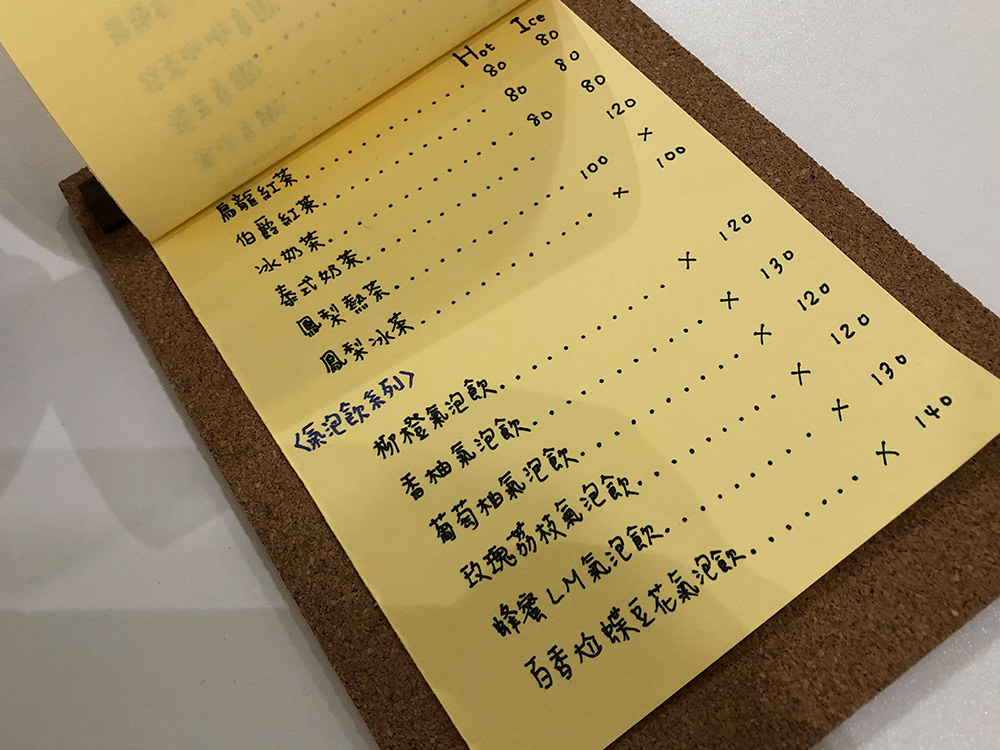 Hot Ice
烏龍紅茶.............. 80 80
伯爵紅茶.............. 80 80
冰奶茶............... 80 80
泰式奶茶.............. 120
鳳梨熱茶.............. 100 ×
鳳梨冰茶............. × 100
〈氣泡飲系列〉
柳橙氣泡飲............ × 120
香柚氣泡飲............ × 130
葡萄柚氣泡飲........... × 120
玫瑰荔枝氣泡飲.......... × 120
蜂蜜LM氣泡飲.......... × 130
百香尬蝶豆花氣泡飲........ × 140